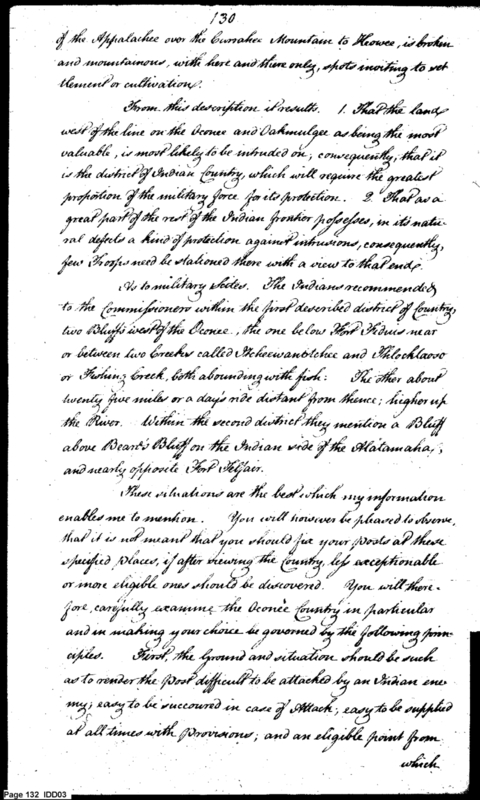 130
of the Appalachee over the Currahee Mountain to Keowee, is broken
and mountainous, with here and there only, spots inviting to set
tlement or cultivation.
From this description it results. 1. That the lands
west of the line on the Oconee and Oakmulgee as being the most
valuable, is most likely to be intruded on; consequently, that it
is the district of Indian Country, which will require the greatest
proportion of the military force for its protection. 2. That as a
great part of the rest of the Indian frontier possesses, in it's natu-
ral defects a kind of protection against intrusions, consequently,
few Troops need be stationed there with a view to that end.
As to military Sides. The Indians recommended
to the Commissioners within the first described district of Country,
two Bluffs west of the Oconee, the one below Fort Fidius near
or between two Creeks called Itcheewantolchee and
or Fishing Creek, both abounding with fish: The other about
twenty five miles or a day's ride distant from thence; higher up
the River. Within the second district they mention a Bluff
above Beard's Bluff on the Indian side of the Alatamaha,;
and nearly opposite Fort Telfair.
These situations are the best which my information
enables me to mention. You will however be pleased to observe,
that it is not meant that you should fix your posts at these
specified places, if after viewing the Country, less exceptionable
or more eligible ones should be discovered. You will there-
fore, carefully examine the Oconee Country in particular
and in making your choice be governed by the following prin-
ciples. First, the Ground and situation should be such
as to render the Post difficult to be attacked by an Indian ene
my; easy to be succoured in case of Attack; easy to be supplied
at all times with Provisions; and an eligible point from
which
Page 132 IDD03